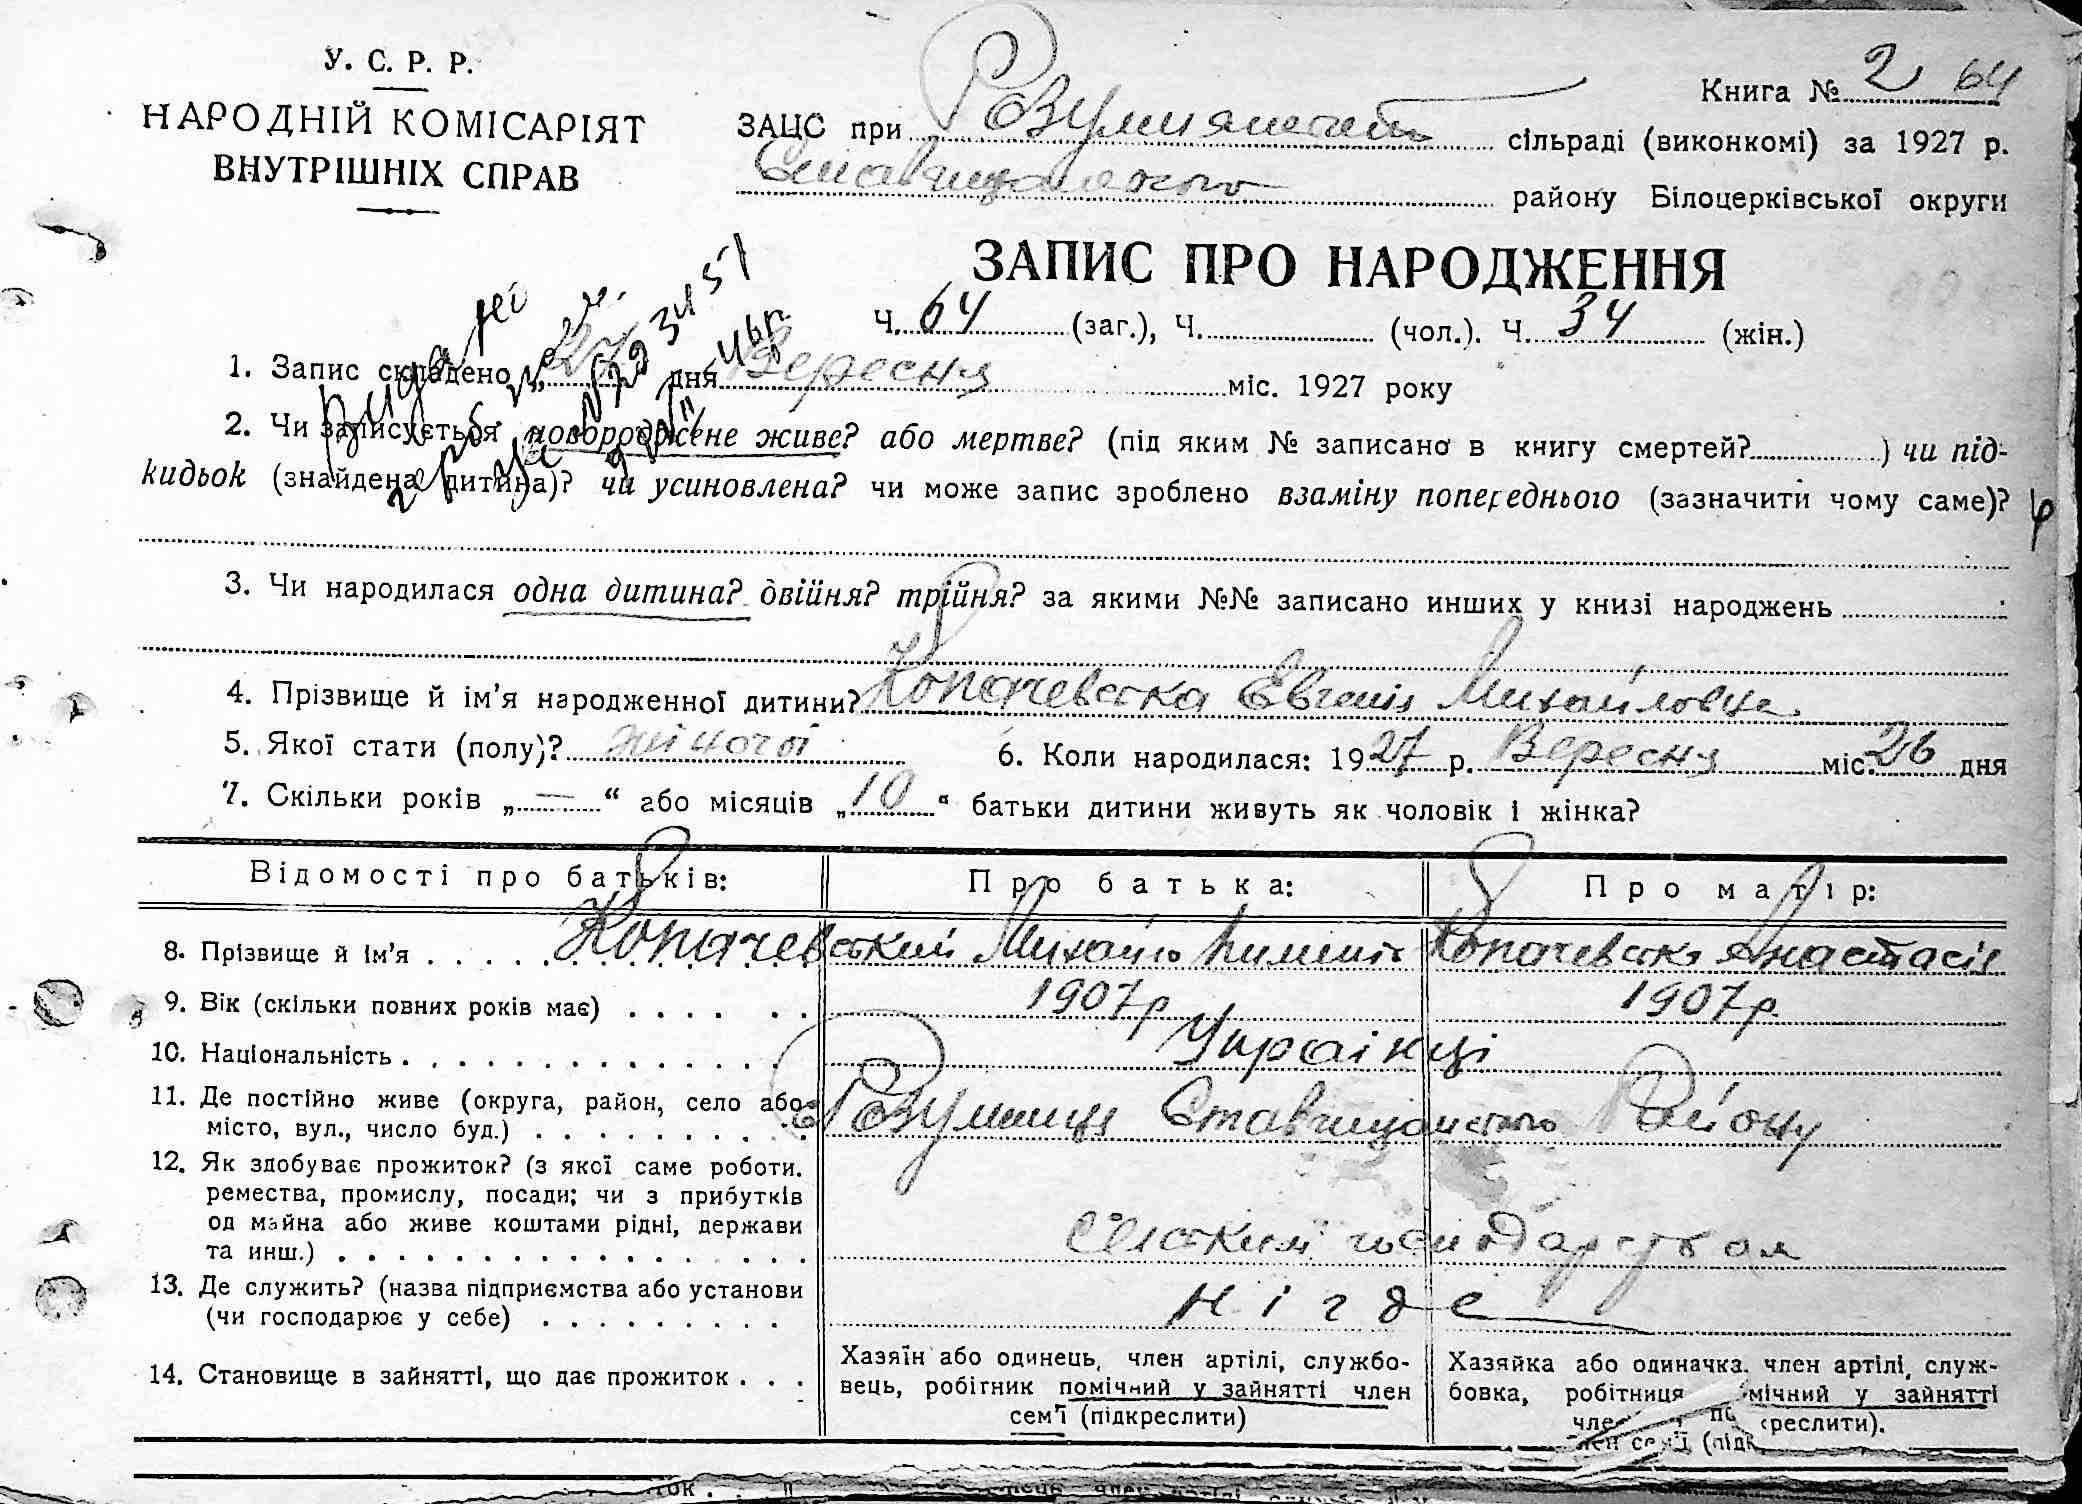 У. С. Р. Р.
НАРОДНІЙ КОМІСАРІЯТ
ВНУТРІШНІХ СПРАВ
Книга № 2 64
ЗАЦС при сільраді (виконкомі) за 1927 р.
району Білоцерківської округи
ЗАПИС ПРО НАРОДЖЕННЯ
Ч. 64 (заг.), Ч. (чол.). Ч. 34 (жін.)
1. Запис складено „27 дня Вересня міс. 1927 року
2. Чи записується новороджене живе? або мертве? (під яким № записано в книгу смертей? ) чи під-
кидьок (знайдена дитина)? чи усиновлена? чи може запис зроблено взаміну попереднього (зазначити чому саме)?
3. Чи народилася одна дитина? двійня? трійня? за якими №№ записано инших у книзі народжень
4. Прізвище й ім’я народженної дитини? Копачевська Євгенія Михайловна
5. Якої стати (полу)? жіночої 6. Коли народилася: 1927 р. Вересня міс. 26 дня
7. Скільки років „—“ або місяців „10“ батьки дитини живуть як чоловік і жінка?
Відомості про батьків: Про батька: Про матір:
8. Прізвище й ім’я Копачевський Михайло Копачевська Анастасія
9. Вік (скільки повних років має) 1907р 1907р.
10. Національність Українці
11. Де постійно живе (округа, район, село або
місто, вул., число буд.) Розумниця Ставищанського Району
12. Як здобуває прожиток? (з якої саме роботи.
ремества, промислу, посади; чи з прибутків
од майна або живе коштами рідні, держави
та инш.) Сільским господарством
13. Де служить? (назва підприємства або установи
(чи господарює у себе) нігде
14. Становище в зайнятті, що дає прожиток
Хазяїн або одинець, член артілі, службо-
вець, робітник помічний у зайнятті член
сем’ї (підкреслити)
Хазяйка або одиначка. член артілі, служ-
бовка, робітниця мічний у зайнятті
креслити).